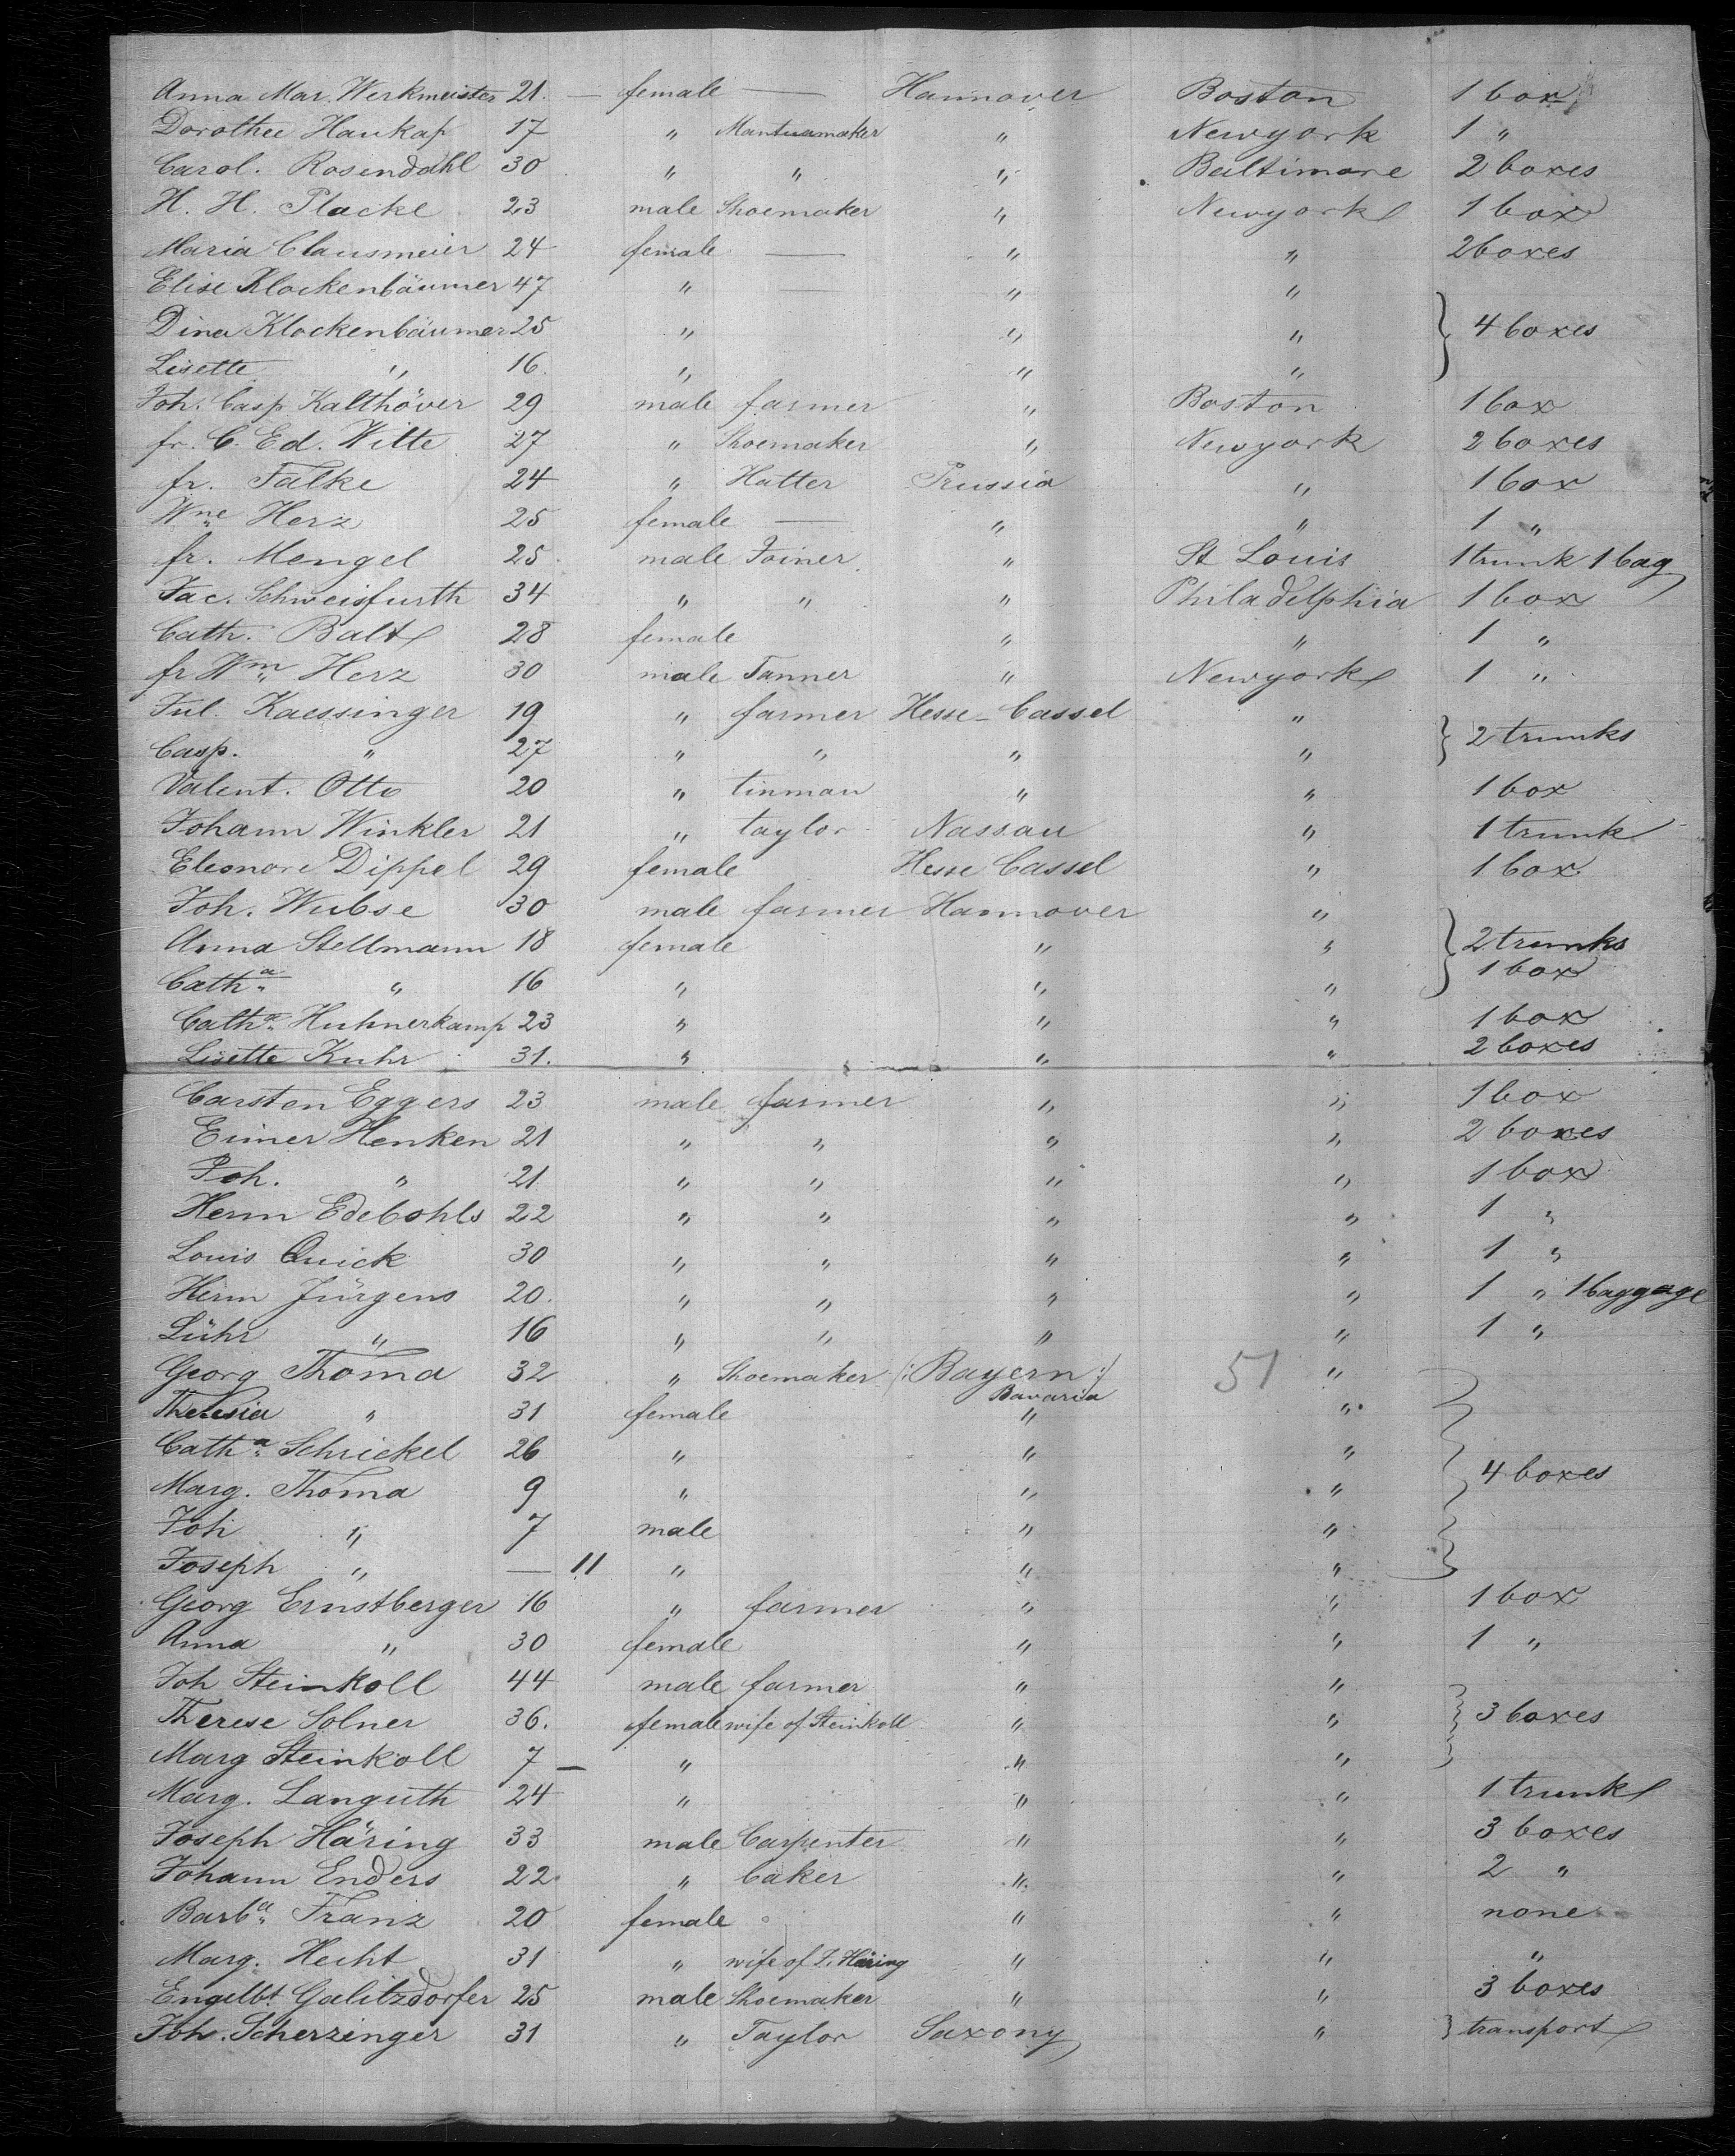 Anna Mar. Werkmeister 21. — female — Hannover Boston 1 box
Dorothee Haukap 17 " Mantuamaker " Newyork 1 "
Carol. Rosendahl 30 " " " Baltimore 2 boxes
H. H. Placke 23 male Shoemaker " Newyork 1 box
Maria Clausmeier 24 female — " " 2 boxes
Elise Klockenbäumer 47 " — " "
Dina Klockenbäumer 25 " " " } 4 boxes
Lisette " 16. " " "
Joh. Casp. Kalthöver 29 male farmer " Boston 1 box
fr. C. Ed. Witte 27 " Shoemaker " Newyork 2 boxes
fr. Falke 24 " Hatter Prussia " 1 box
Wne Herz 25 female — " " 1 "
fr. Mengel 25. male Joiner. " St Louis 1 trunk 1 bag
Jac. Schweisfurth 34 " " " Philadelphia 1 box
Cath. Balt 28 female " " 1 "
fr Wm Herz 30 male Tanner " Newyork 1 "
Jul. Kaessinger 19 " farmer Hesse-Cassel "
Casp. " 27 " " " " } 2 trunks
Valent. Otto 20 " tinman " " 1 box
Johann Winkler 21 " taylor Nassau " 1 trunk
Eleonore Dippel 29 female Hesse Cassel " 1 box
Joh. Wubse 30 male farmer Hannover "
Anna Stellmann 18 female " " } 2 trunks
Catha " 16 " " " 1 box
Catha Huhnerkamp 23 " " " 1 box
Lisette Kuhr 31. " " " 2 boxes
Carsten Eggers 23 male farmer " " 1 box
Eimer Henken 21 " " " " 2 boxes
Joh. " 21 " " " " 1 box
Herm Edebohls 22 " " " " 1 "
Louis Quick 30 " " " " 1 "
Herm Jürgens 20. " " " " 1 " 1 baggage
Lühr " 16 " " " " 1 "
Georg Thoma 32 " Shoemaker (: Bayern :) 51 "
Bavaria
Theresia " 31 female " "
Catha Schrickel 26 " " "
Marg. Thoma 9 " " " } 4 boxes
Joh " 7 male " "
Joseph " — 11 " " "
Georg Ernstberger 16 " farmer " " 1 box
Anna " 30 female " " 1 "
Joh Steinkoll 44 male farmer " "
Therese Solner 36. female wife of Steinkoll " " } 3 boxes
Marg Steinkoll 7 — " " "
Marg. Languth 24 " " " 1 trunk
Joseph Häring 33 male Carpenter " " 3 boxes
Johann Enders 22 " baker " " 2 "
Barba Franz 20 female " " none
Marg. Hecht 31 " wife of J. Häring " " "
Engelbt Galitzdorfer 25 male Shoemaker " " 3 boxes
Joh. Scherzinger 31 " Taylor Saxony " } transport